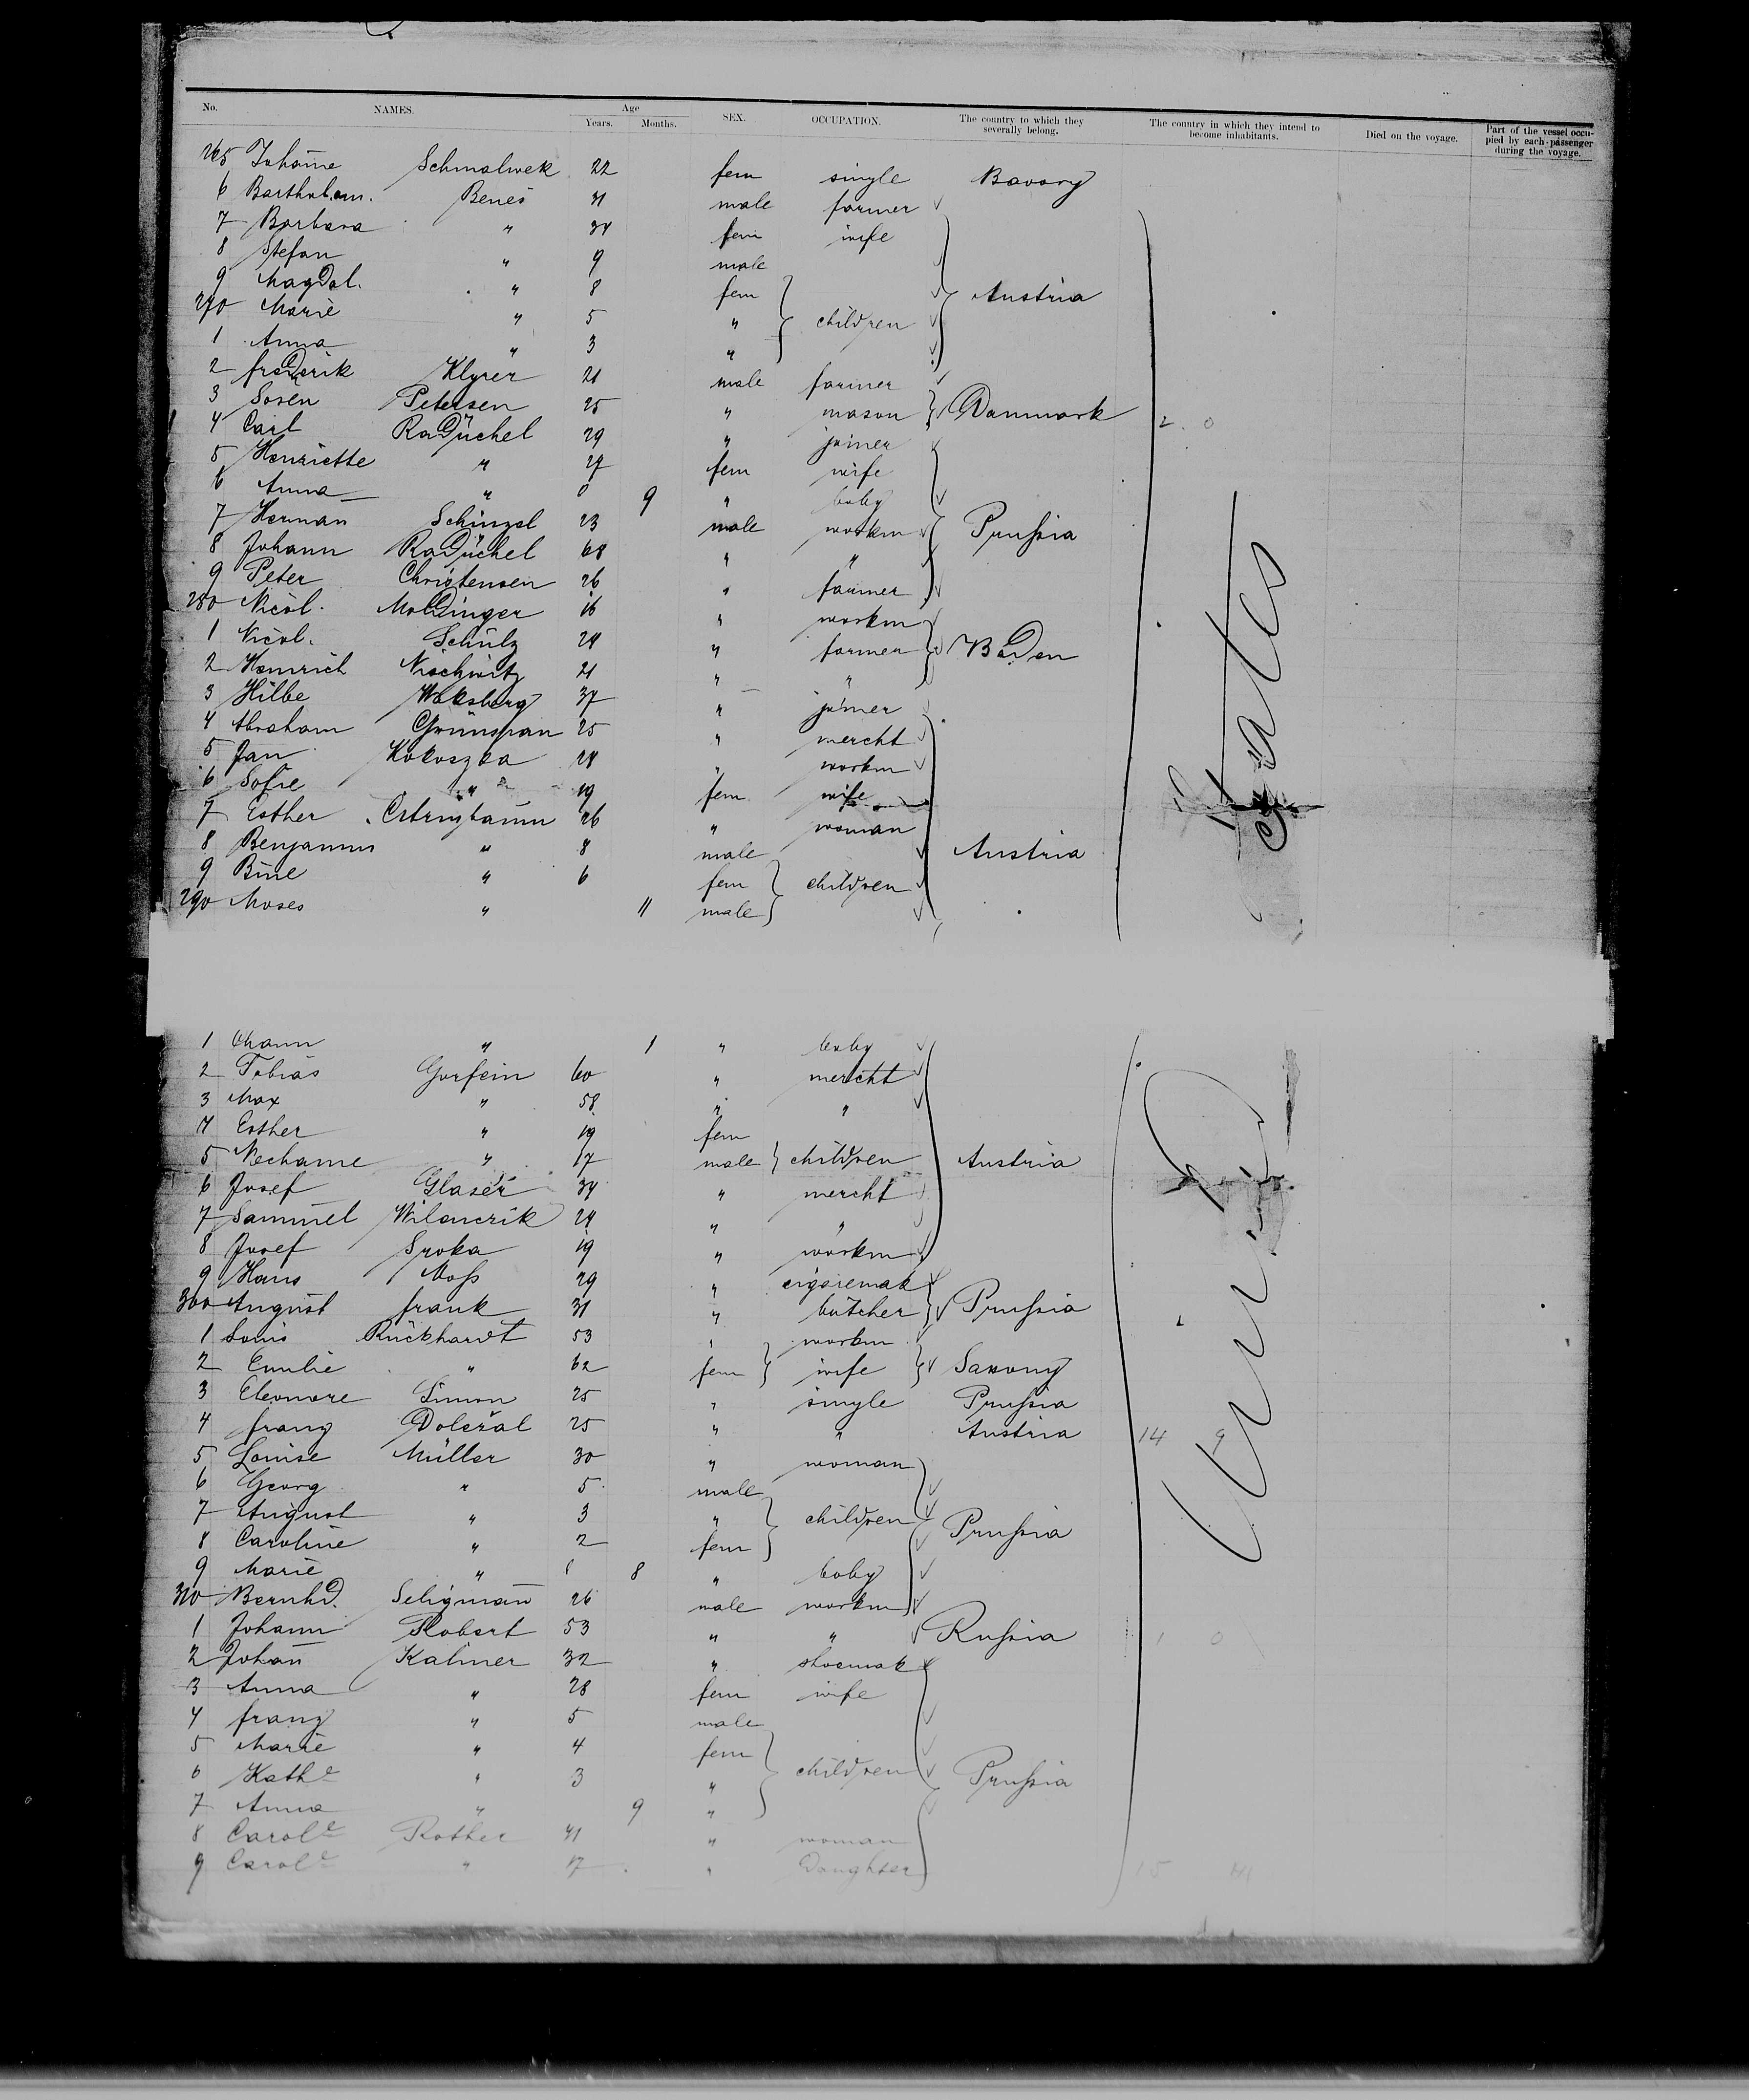 No. NAMES. Age Years. Months. SEX. OCCUPATION. The country to which they severally belong. The country in which they intend to become inhabitants. Died on the voyage. Part of the vessel occupied by each passenger during the voyage.
265 Johanne Schmalwek 22 fem single Bavary
6 Bartholom. Beneš male farmer
7 Barbara " 34 fem wife
8 Stefan " 9 male
9 Magdal. " 8 fem Austria
270 Marie " 5 " children
1 Anna " 3 "
2 frederik Klyrer 21 male farmer
3 Soren Petersen 25 " mason Danmark 2 0
4 Carl Radüchel 29 " joiner
5 Henriette " 27 fem wife
6 Anna " 0 9 " baby
7 Herman Schinzel 23 male workm Prussia
8 Johann Radüchel 68 " "
9 Peter Christensen 26 " farmer
280 Nicol. Moldinger 16 " workm
1 Nicol. Schulz 24 " farmer Baden
2 Heinrich Nischwitz 21 " "
3 Hilbe Waksberg 37 " joiner
4 Abraham Grünspan 25 " mercht
5 Jan Kokoszka 28 " workm
6 Sofie " 19 fem wife
7 Esther 26 " woman
8 Benjamin " 8 male Austria
9 Bine " 6 fem children
290 Moses " 11 male
1 Chann " 1 " baby
2 Tobias Gorfein 60 " mercht
3 Max " 58 " "
4 Esther " 19 fem
5 Nechame " 17 male children Austria
6 Josef Glaser 34 " mercht
7 Sammel Wilencrik 24 " "
8 Josef Sroka 19 " workm
9 Hans Voss 29 " cigaremak
300 August frank 31 " butcher Prussia
1 Louis Rückhardt 53 " workm
2 Emilie " 62 fem wife Saxony
3 Eleonore Simon 25 " single Prussia
4 franz Doležal 25 " " Austria 14 9
5 Louise Müller 30 " woman
6 Georg " 5 male
7 August " 3 " children Prussia
8 Caroline " 2 fem
9 Marie " 8 " baby
310 Bernhd. Seligman 26 male workm
1 Johann Robert 53 " " Russia 1 0
2 Johan Kalmer 32 " shoemak
3 Anna " 28 fem wife
4 franz " 5 male
5 Marie " 4 fem
6 Kathe " 3 " children Prussia
7 Anna " 9 "
8 Carole Rother 41 " woman
9 Carole " 17 " Daughter 15
United States